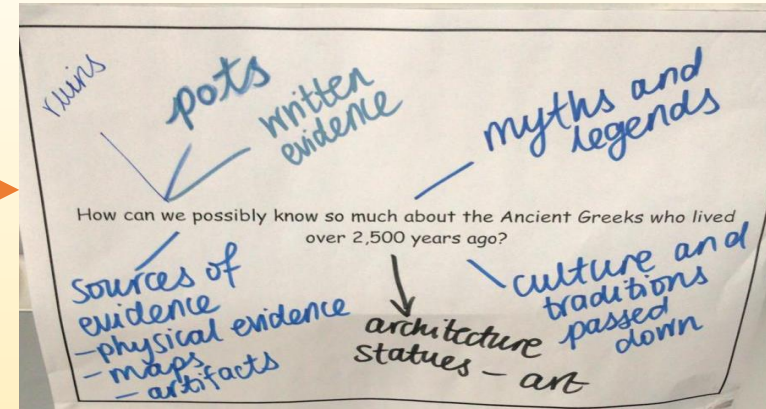 ruins
pots
written
evidence
myths and
legends
How can we possibly know so much about the Ancient Greeks who lived
over 2,500 years ago?
Sources of
evidence
-physical evidence
- maps
- artifacts
architecture
statues - art
culture and
traditions
passed
down